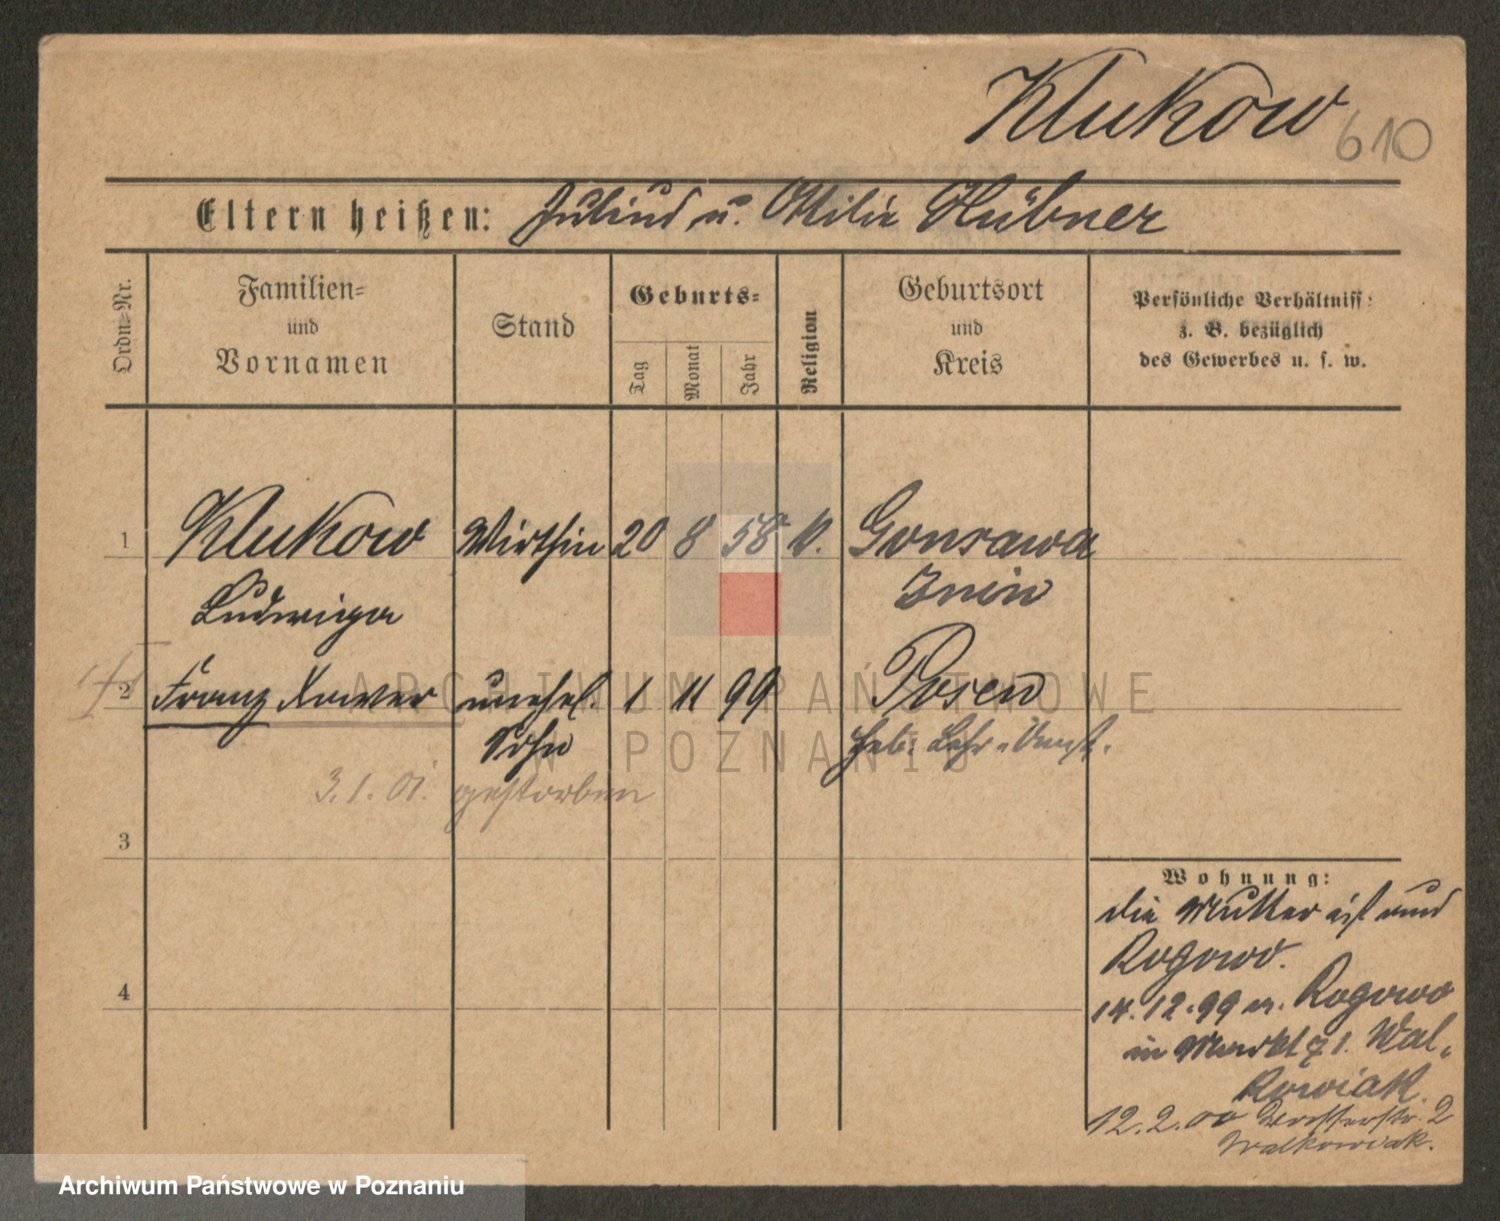 Klukow
610
Eltern heißen: Julius u. Ottilie Hübner
Ordn=Nr.
Familien= und Vornamen
Stand
Geburts=
Tag
Monat
Jahr
Religion
Geburtsort und Kreis
Persönliche Verhältniss
z. B. bezüglich
des Gewerbes u. s. w.
1 Klukow Wirthin 20 8 58 k. Gonsawa
Ludwiga Znin
2 Franz Xaver unehel. 1 11 99 Posen
Sohn Heb.
3.1.01. gestorben
3
4
Wohnung:
die Mutter ist aus
Rogowo.
14.12.99 n. Rogowo
in Markt 71. Wal-
kowiak
12.2.00 2
Walkowiak.
ARCHIWUM PAŃSTWOWE
W POZNANIU
Archiwum Państwowe w Poznaniu